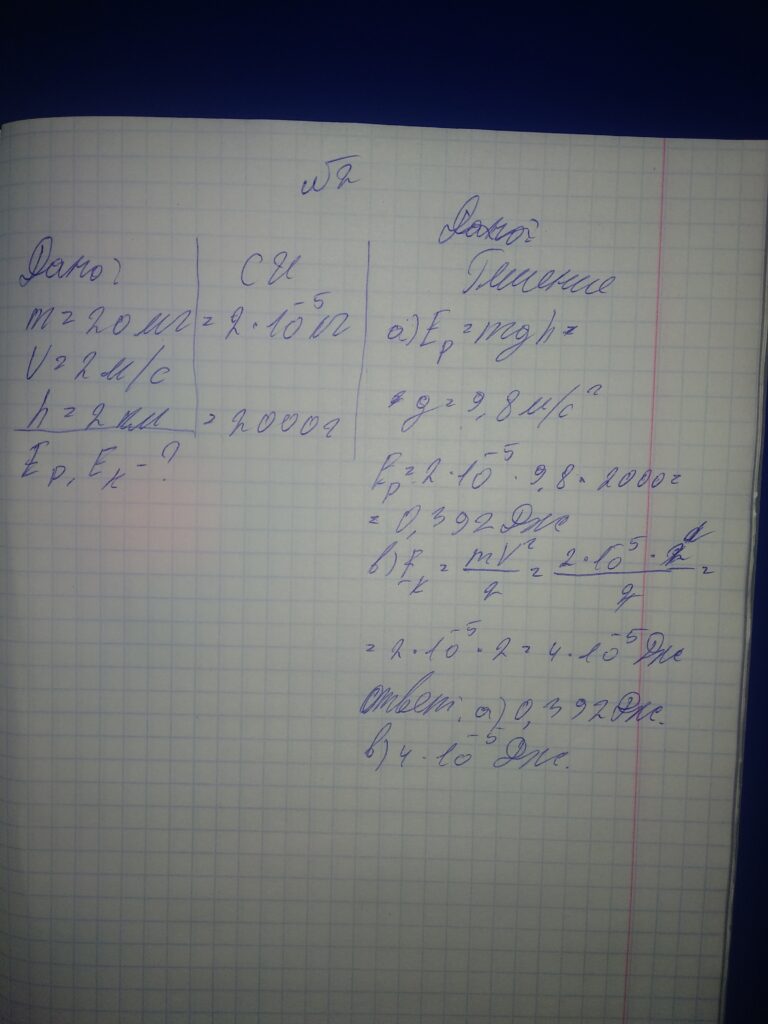 №2
Дано:
m = 20 мг
V = 2 м/с
h = 2 км
Ep, Ek - ?
СИ
= 2 · 10⁻⁵ кг
= 2000
Дано:
Решение
a) Ep = mgh =
g = 9,8 м/с²
Ep = 2 · 10⁻⁵ · 9,8 · 2000 =
= 0,392 Дж
в) Ek = mV²/2 = 2 · 10⁻⁵ · 2²/2 =
= 2 · 10⁻⁵ · 2 = 4 · 10⁻⁵ Дж
ответ: a) 0,392 Дж.
в) 4 · 10⁻⁵ Дж.